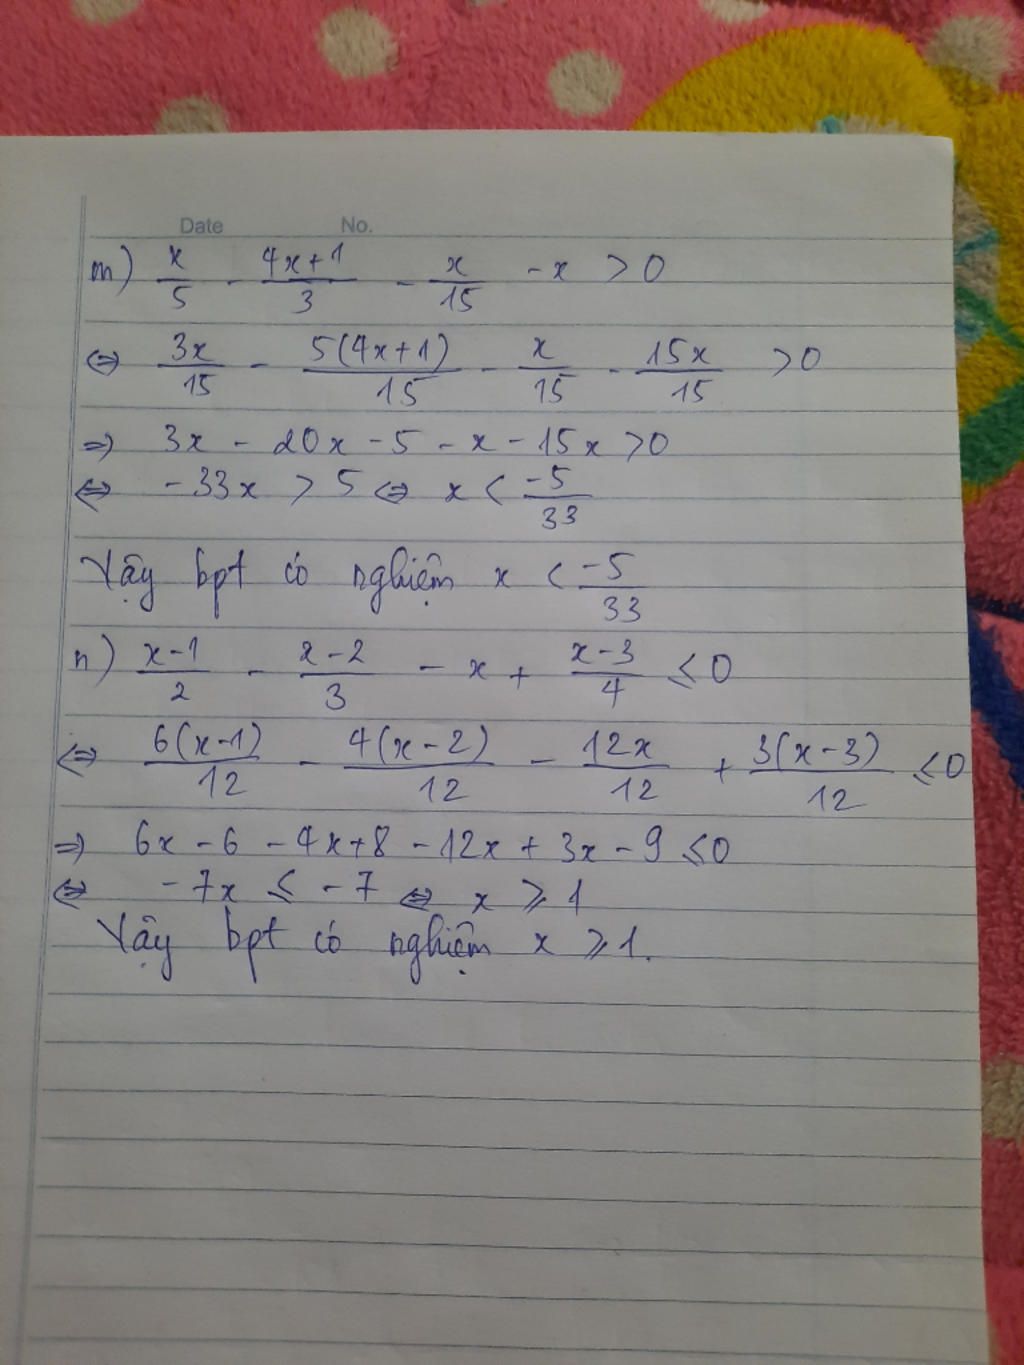 Date No.
m) x/5 - 4x+1/3 - x/15 - x > 0
⇔ 3x/15 - 5(4x+1)/15 - x/15 - 15x/15 > 0
⇒ 3x - 20x - 5 - x - 15x > 0
⇔ -33x > 5 ⇔ x < -5/33
Vậy bpt có nghiệm x < -5/33
n) x-1/2 - x-2/3 - x + x-3/4 ≤ 0
⇔ 6(x-1)/12 - 4(x-2)/12 - 12x/12 + 3(x-3)/12 ≤ 0
⇒ 6x - 6 - 4x + 8 - 12x + 3x - 9 ≤ 0
⇔ -7x ≤ -7 ⇔ x ≥ 1
Vậy bpt có nghiệm x ≥ 1.